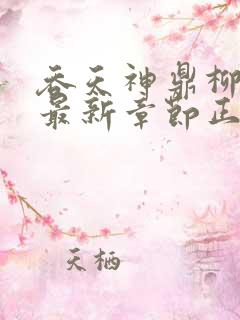 吞天神鼎柳
最新章节正
天栖